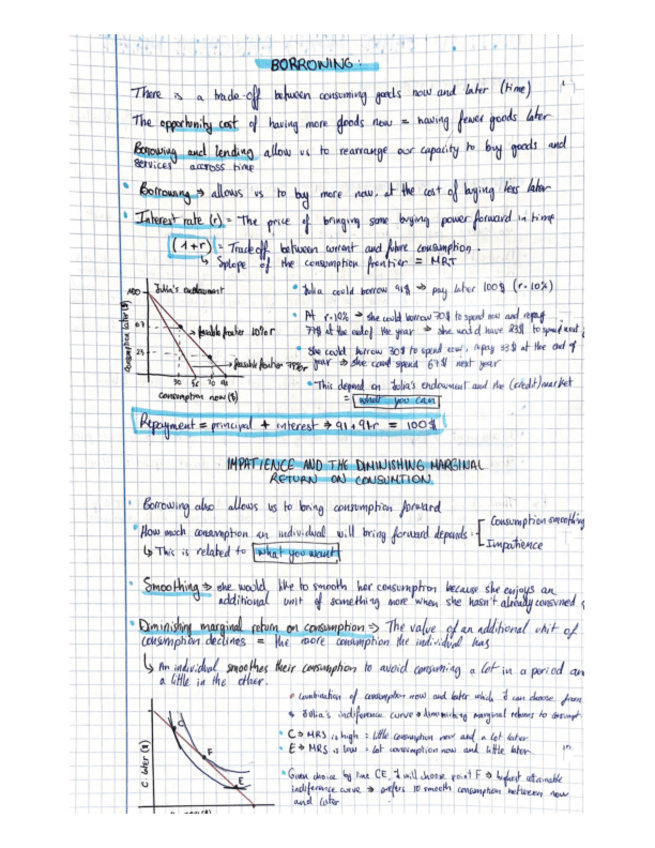 BORROWING:
There is a trade-off between consuming goods now and later (time)
The opportunity cost of having more goods now = having fewer goods later
Borrowing and lending allow us to rearrange our capacity to buy goods and
services accross time
• Borrowing ⇒ allows us to buy more now, at the cost of buying less later
• Interest rate (r) = The price of bringing some buying power forward in time
(1+r) = Trade off between current and future consumption.
↳ Splope of the consumption frontier = MRT
Julia's endowment
Consumption later ($)
100
67
23
feasible frontier 10% r
feasible frontier 78% r
30 56 70 91
consumption now ($)
• Julia could borrow 91$ ⇒ pay later 100$ (r=10%)
• At r=10% ⇒ she could borrow 70$ to spend now and repay
77$ at the end of the year ⇒ she would have 23$ to spend next
• She could borrow 30$ to spend now, repay 33$ at the end of
year ⇒ she could spend 67$ next year
• This depend on Julia's endowment and the (credit) market
= what you can
Repayment = principal + interest ⇒ 91 + 91r = 100$
IMPATIENCE AND THE DIMINISHING MARGINAL
RETURN ON CONSUMTION
• Borrowing also allows us to bring consumption forward
• How much consumption an individual will bring forward depends:
Consumption smoothing
Impatience
↳ This is related to what you want
• Smoothing ⇒ she would like to smooth her consumption because she enjoys an
additional unit of something more when she hasn't already consumed
• Diminishing marginal return on consumption ⇒ The value of an additional unit of
consumption declines = the more consumption the individual has
↳ An individual smoothes their consumption to avoid consuming a lot in a period and
a little in the other.
C later ($)
C
F
E
• Combination of consumption now and later which J can choose from
• Julia's indiference curve ⇒ diminishing marginal returns to consumpt
• C ⇒ MRS is high = little consumption now and a lot later
• E ⇒ MRS is low = lot consumption now and little later
• Given choice by line CE, J will choose point F ⇒ highest attainable
indiference curve ⇒ prefers to smooth consumption between now
and later